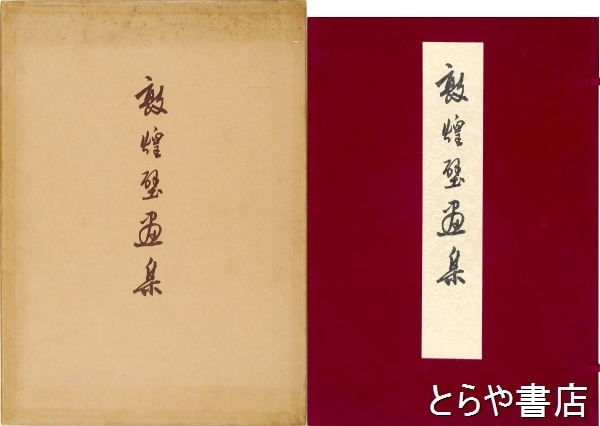 敦煌壁畫集
敦煌壁畫集
とらや書店